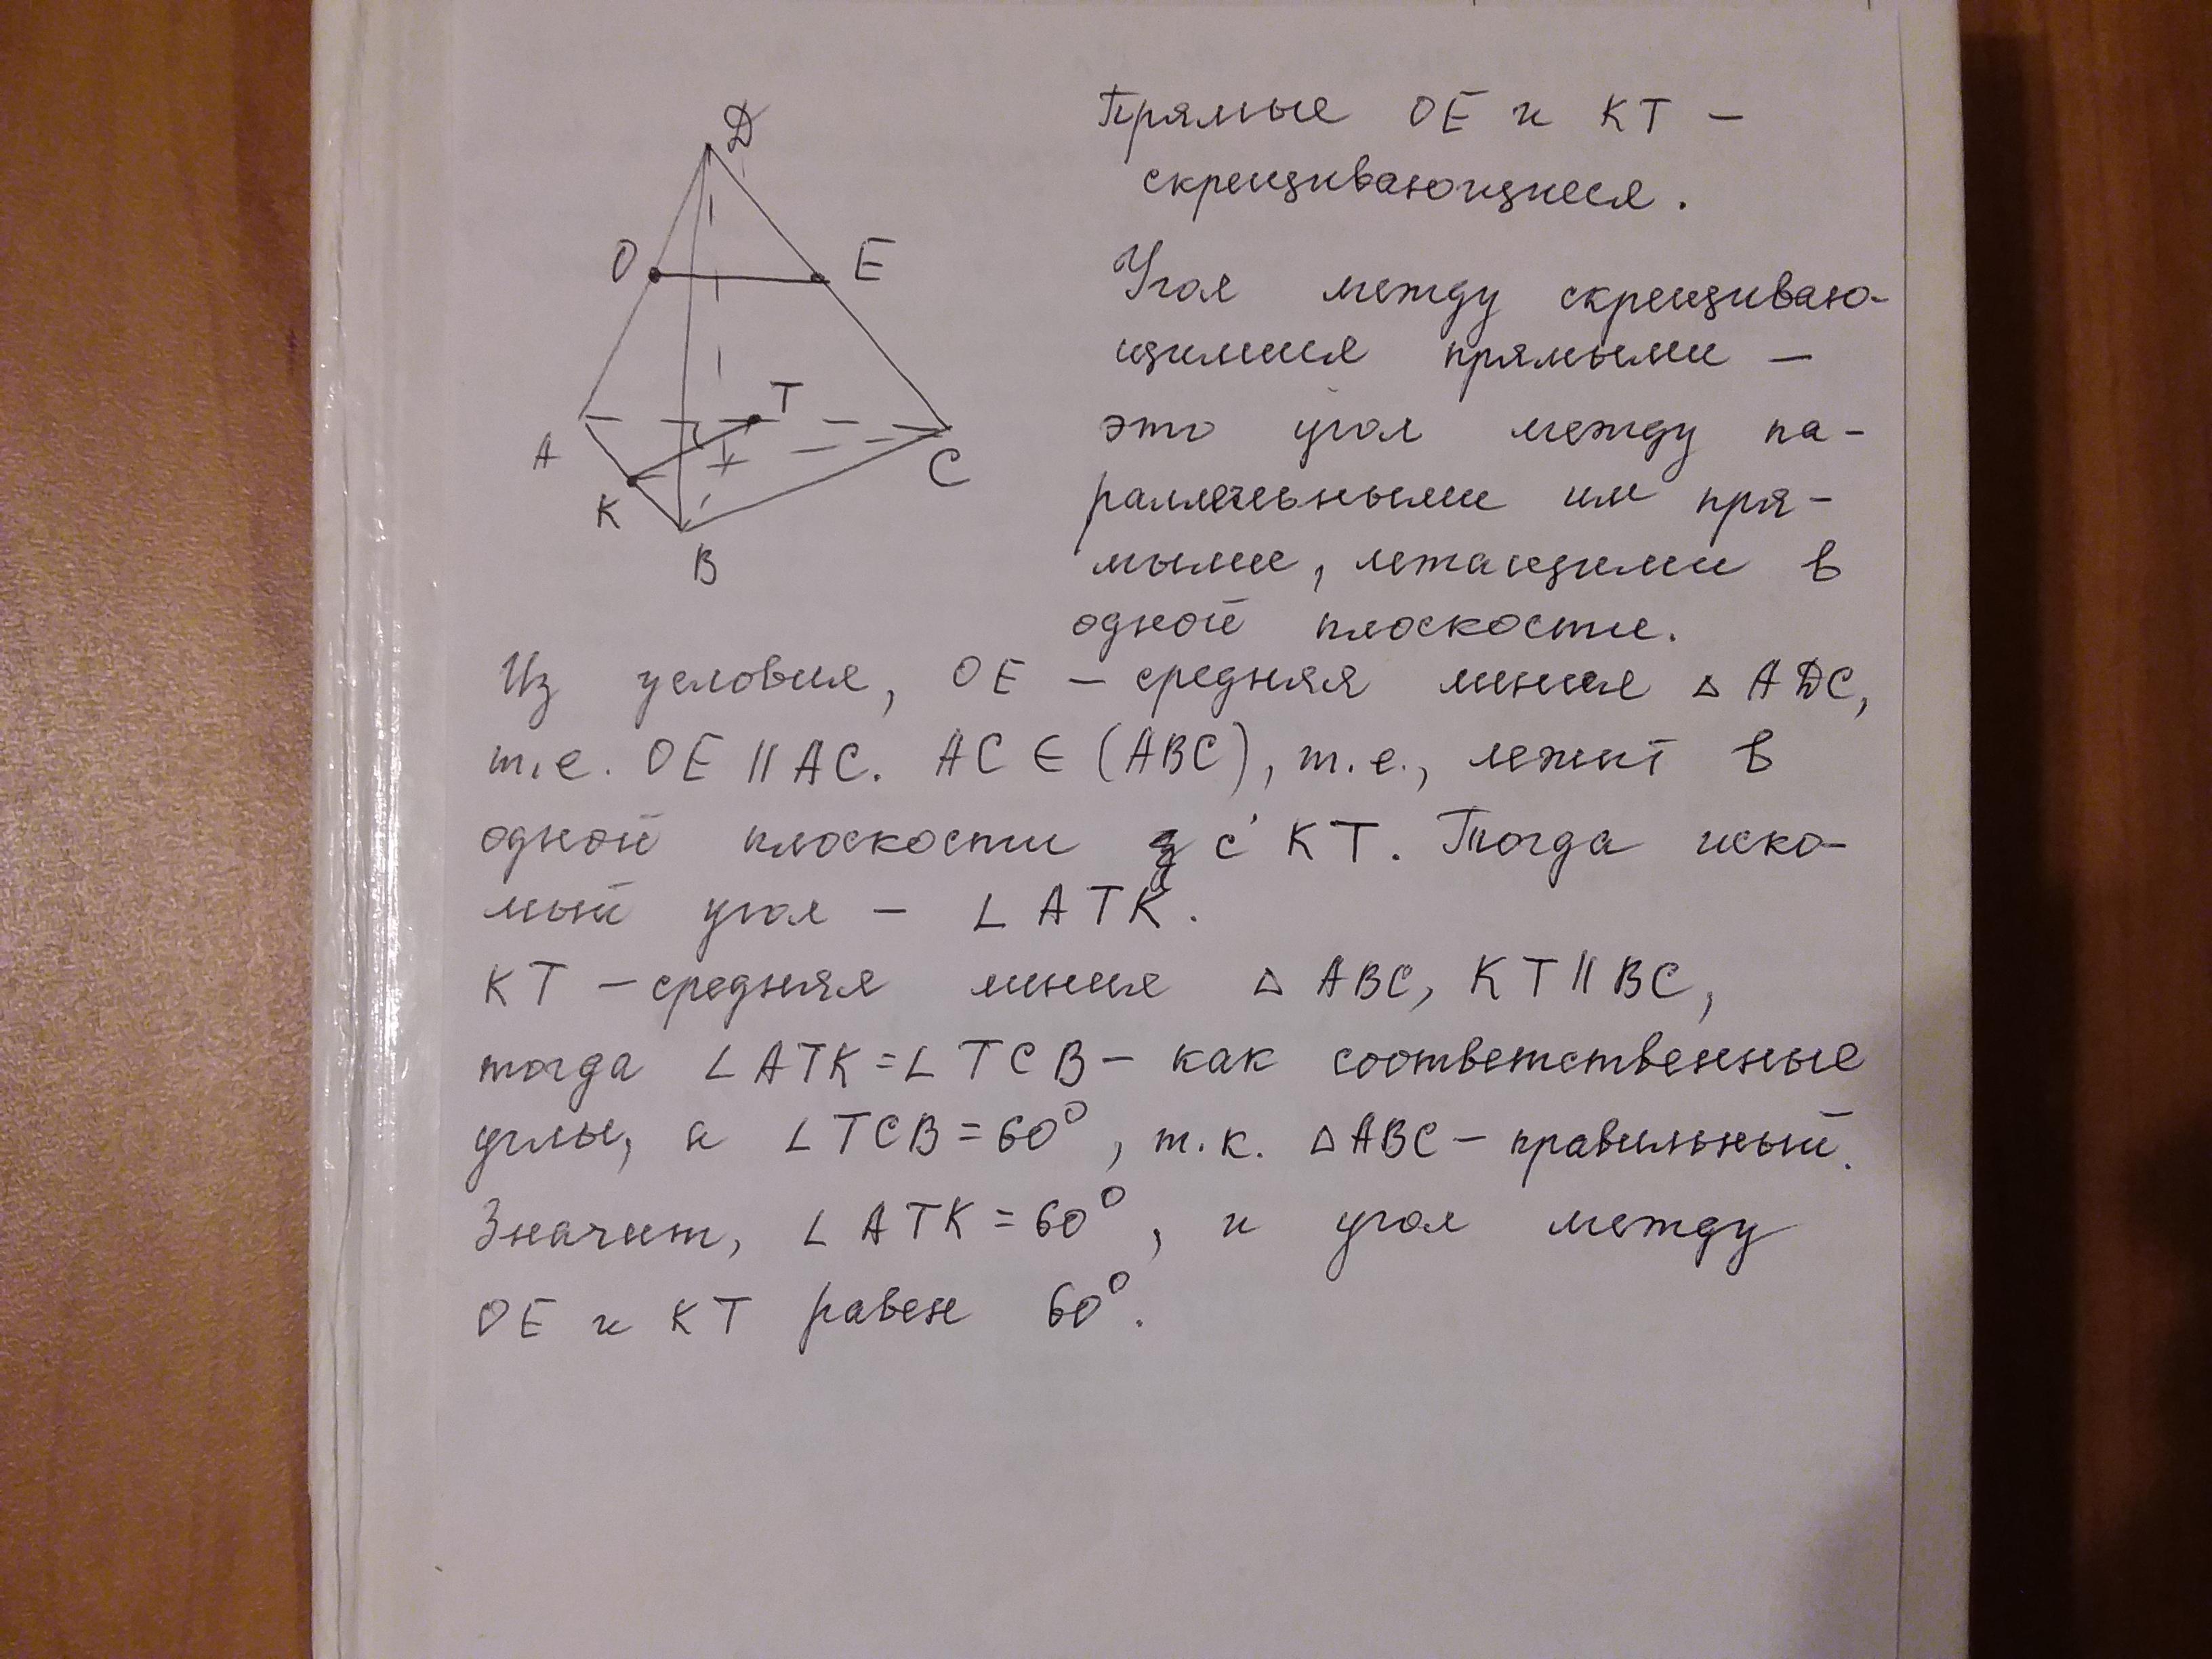 D
O
E
T
A
K
C
B
Прямые OE и KT –
скрещивающиеся.
Угол между скрещиваю-
щимися прямыми –
это угол между па-
раллельными им пря-
мыми, лежащими в
одной плоскости.
Из условия, OE – средняя линия △ ADC,
т.е. OE || AC. AC ∈ (ABC), т.е., лежит в
одной плоскости с KT. Тогда иско-
мый угол – ∠ ATK.
KT – средняя линия △ ABC, KT || BC,
тогда ∠ ATK = ∠ TCB – как соответственные
углы, а ∠ TCB = 60°, т.к. △ ABC – правильный.
Значит, ∠ ATK = 60°, и угол между
OE и KT равен 60°.